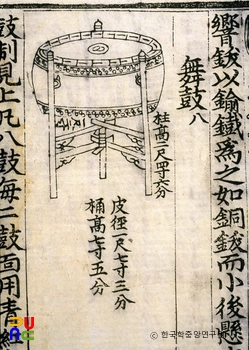 響鈸以鍮鐵爲之如銅鈸而小後縣
舞鼓八
柱高二尺四寸六分
皮徑一尺七寸三分
桶高七寸五分
鼓制見上凡八鼓每二鼓面用青
© 한국학중앙연구원